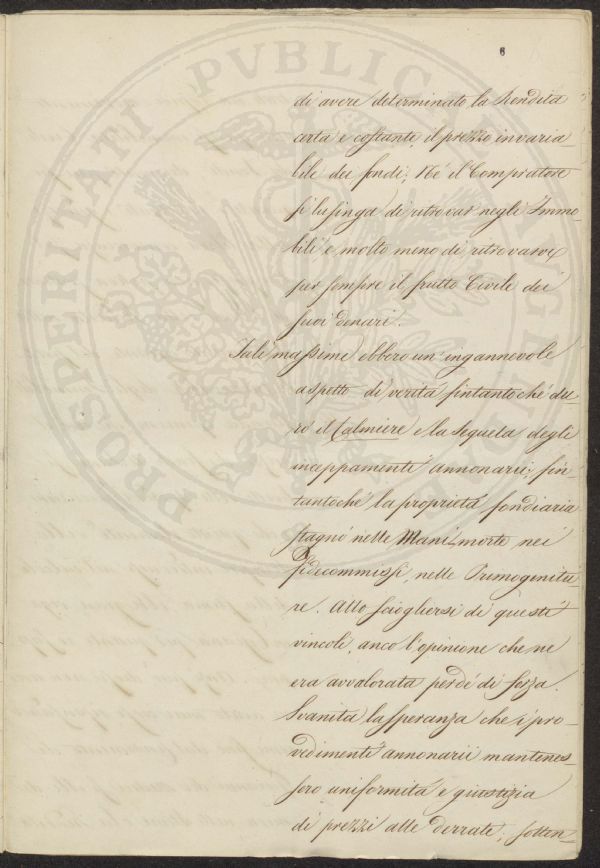 6
di avere determinato la Rendita
certa e costante, il prezzo invaria-
bile dei fondi; Né il Compratore
si lusinga di ritrovar negli Immo-
bili e molto meno di ritrovarvi
per sempre il frutto Civile dei
suoi denari.
Tali massime ebbero un' ingannevole
aspetto di verità fintantoché du-
rò il Calmiere e la sequela degli
inceppamenti annonarii; fin-
tantoché la proprietà fondiaria
stagnò nelle Mani morte nei
fidecommissi, nelle Primogenitu-
re. Allo sciogliersi di questi
vincoli, anco l'opinione che ne
era avvalorata perdé di forza.
Svanita la speranza che i pro-
vedimenti annonarii mantenes-
sero uniformità e giustizia
di prezzi alle derrate; sotten-
PROSPERITATI PVBLICAE AVGENDAE